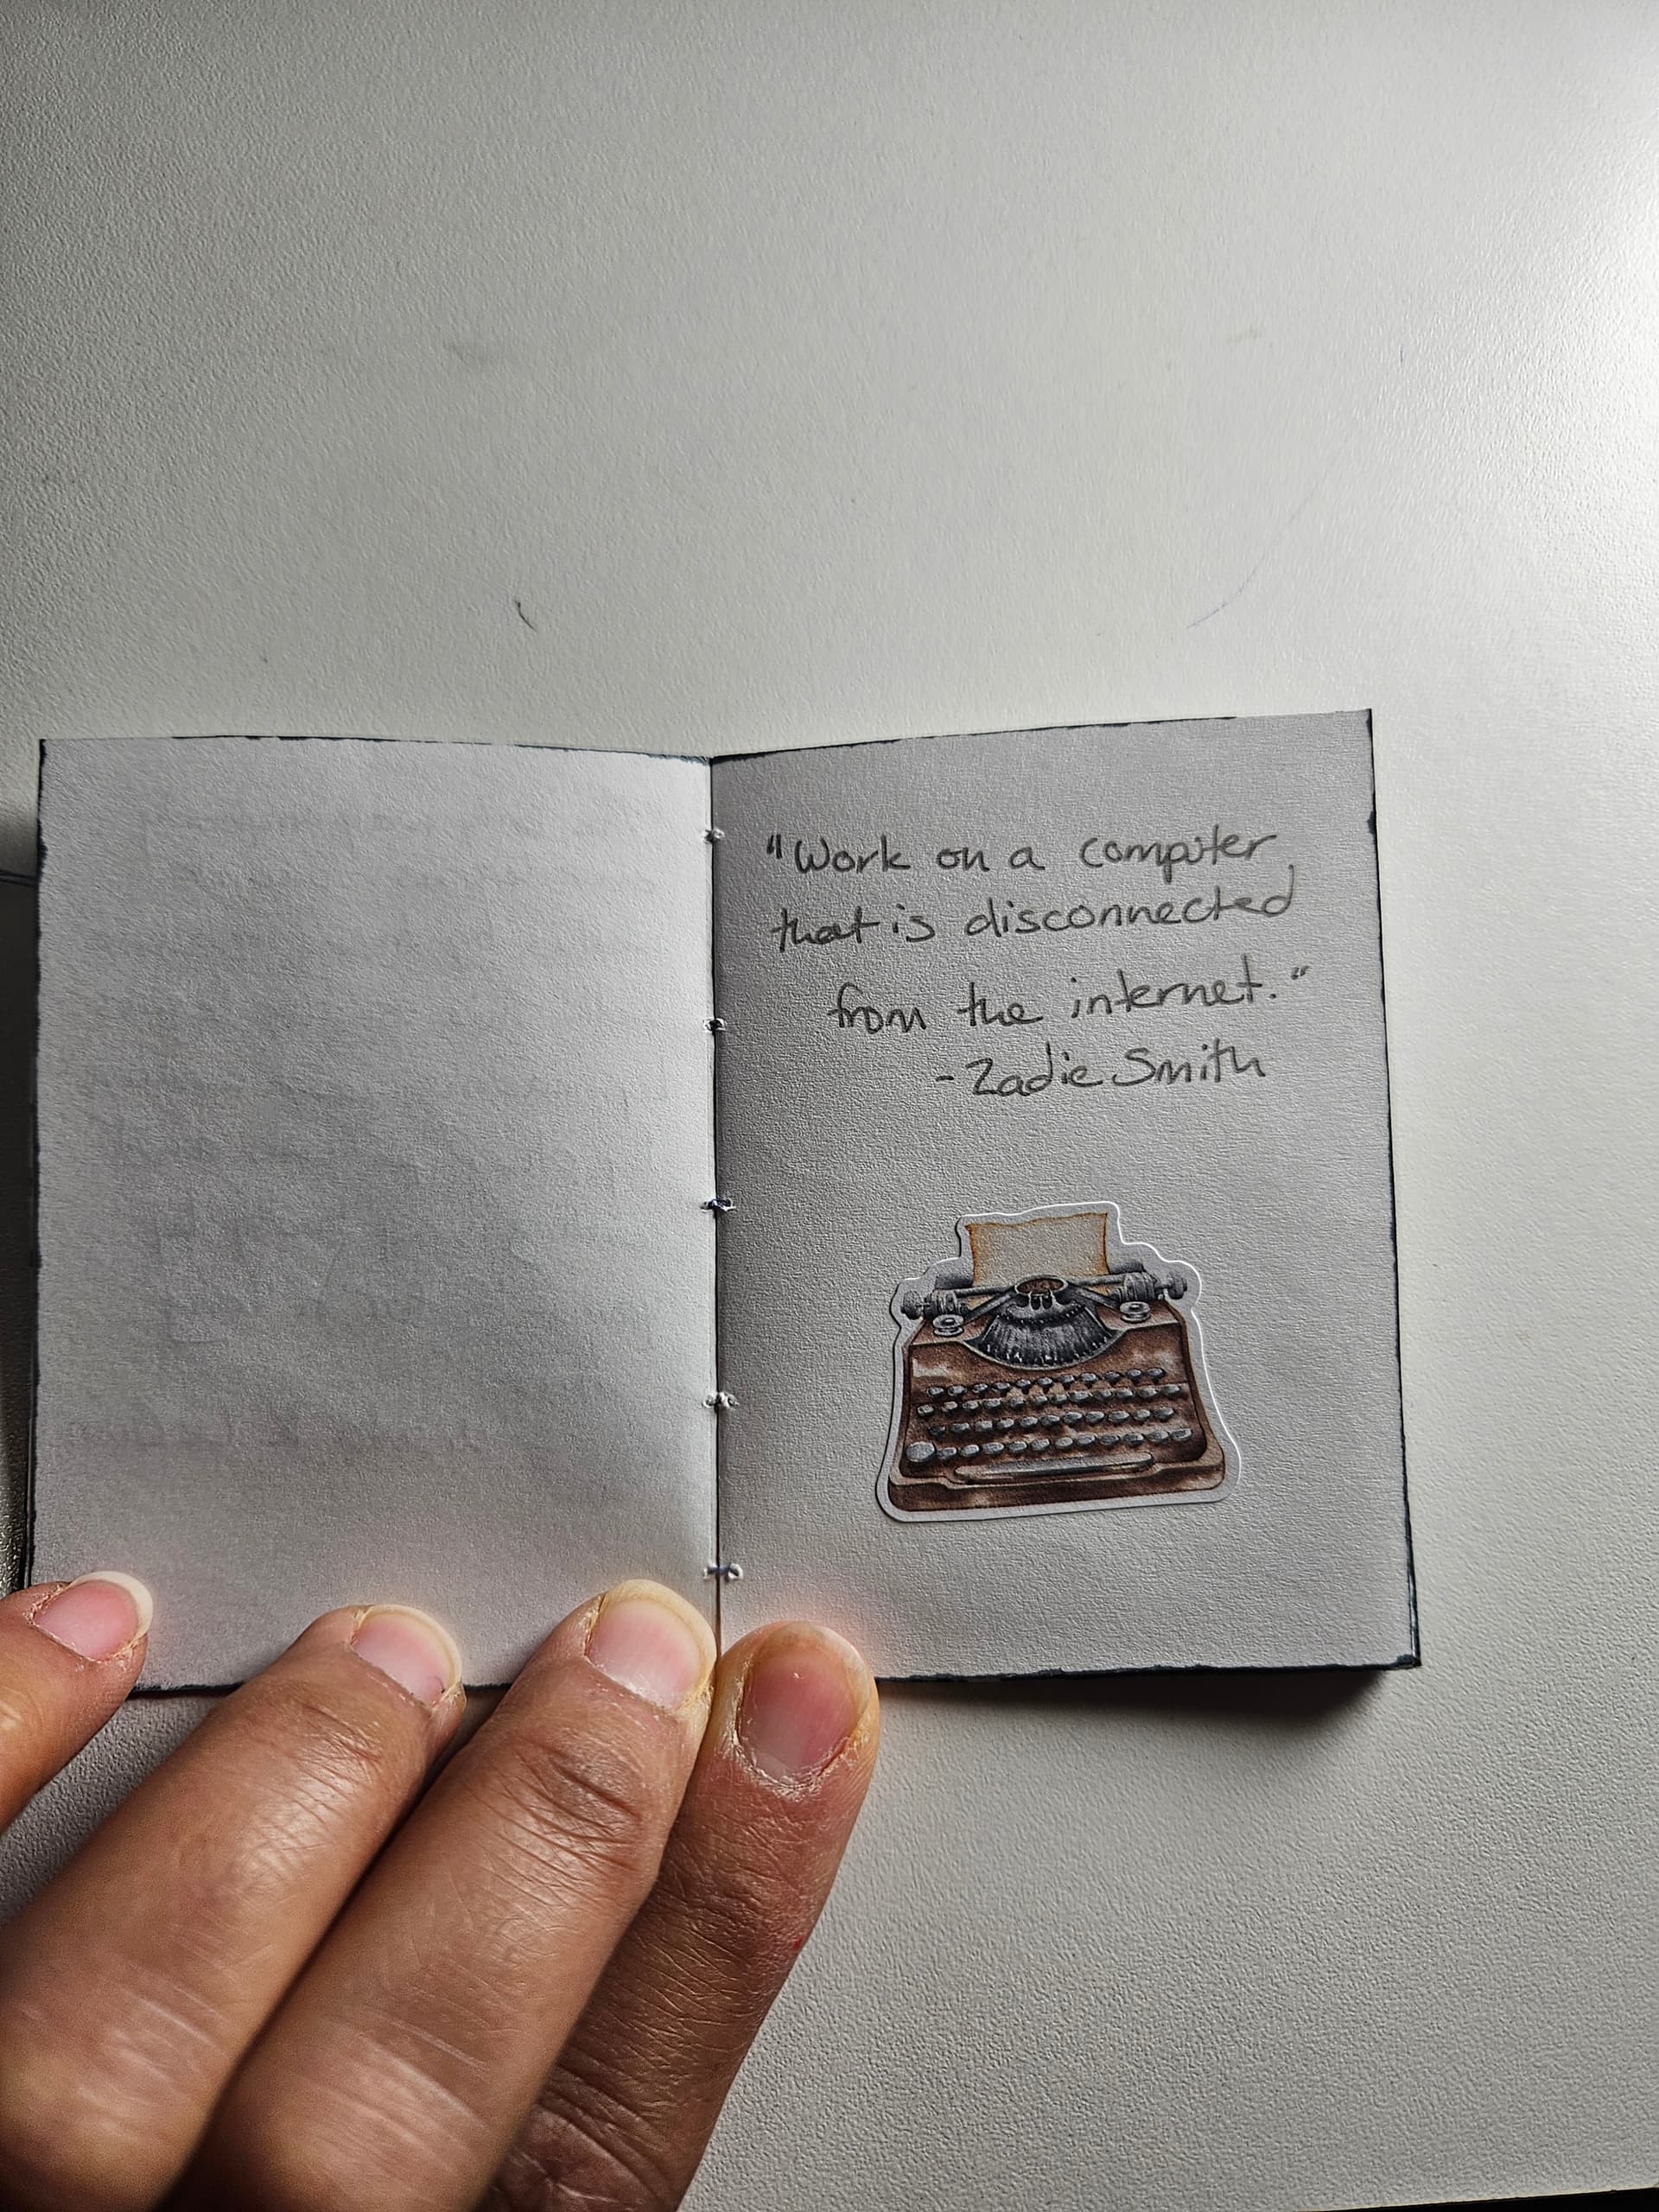 "Work on a computer
that is disconnected
from the internet."
- Zadie Smith